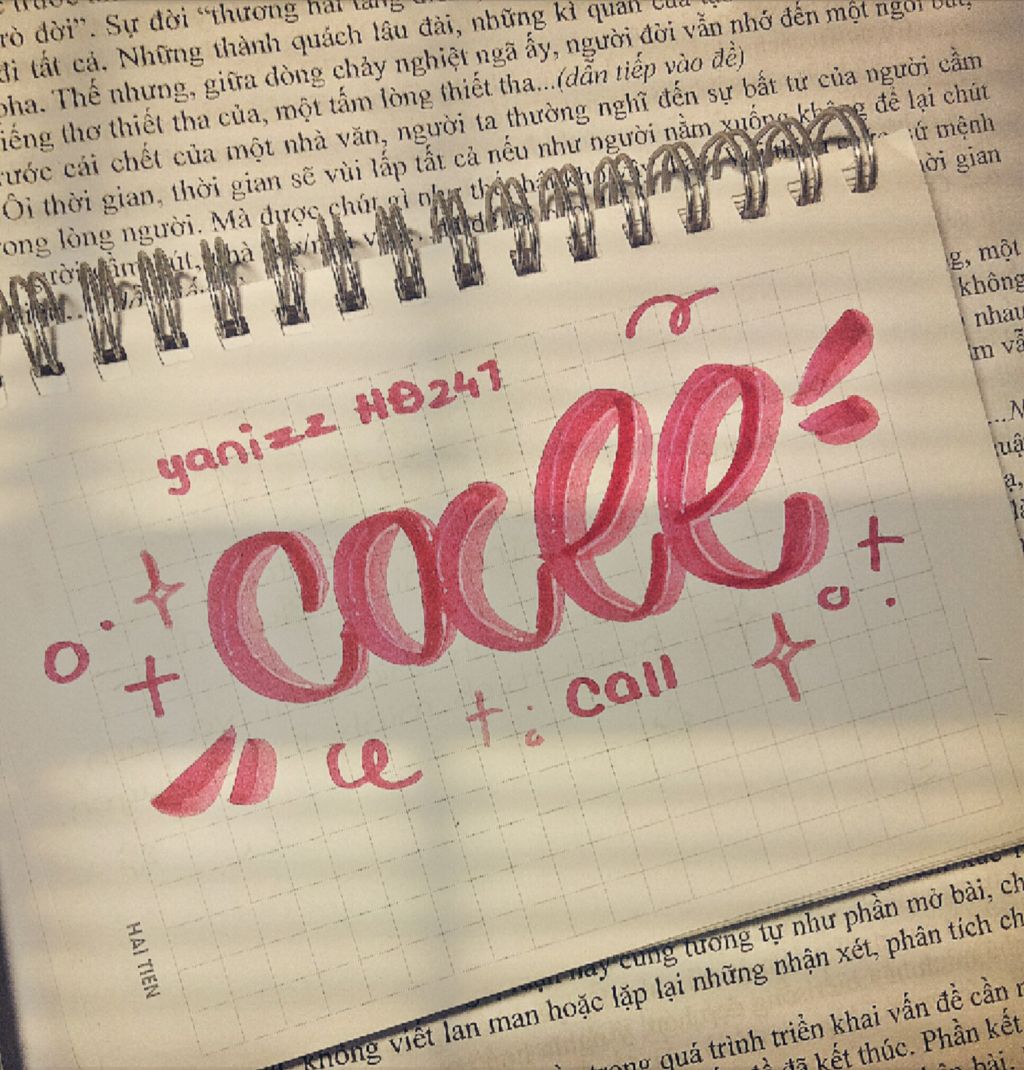 rò đời”. Sự đời “thương hải tang
đi tất cả. Những thành quách lâu đài, những kì quan của
pha. Thế nhưng, giữa dòng chảy nghiệt ngã ấy, người đời vẫn nhớ đến một ngòi bút,
iếng thơ thiết tha của, một tấm lòng thiết tha...(dẫn tiếp vào đề)
rước cái chết của một nhà văn, người ta thường nghĩ đến sự bất tư của người cầm
Ôi thời gian, thời gian sẽ vùi lấp tất cả nếu như người nằm xuống không để lại chút
rong lòng người. Mà được chút gì như thế
sứ mệnh
hời gian
g, một
không
nhau
m vẫ
yanizz HĐ247
call
call
ce
HẢI TIẾN
này cũng tương tự như phần mở bài, ch
không viết lan man hoặc lặp lại những nhận xét, phân tích ch
trong quá trình triển khai vấn đề cần n
đã kết thúc. Phần kết
bài.